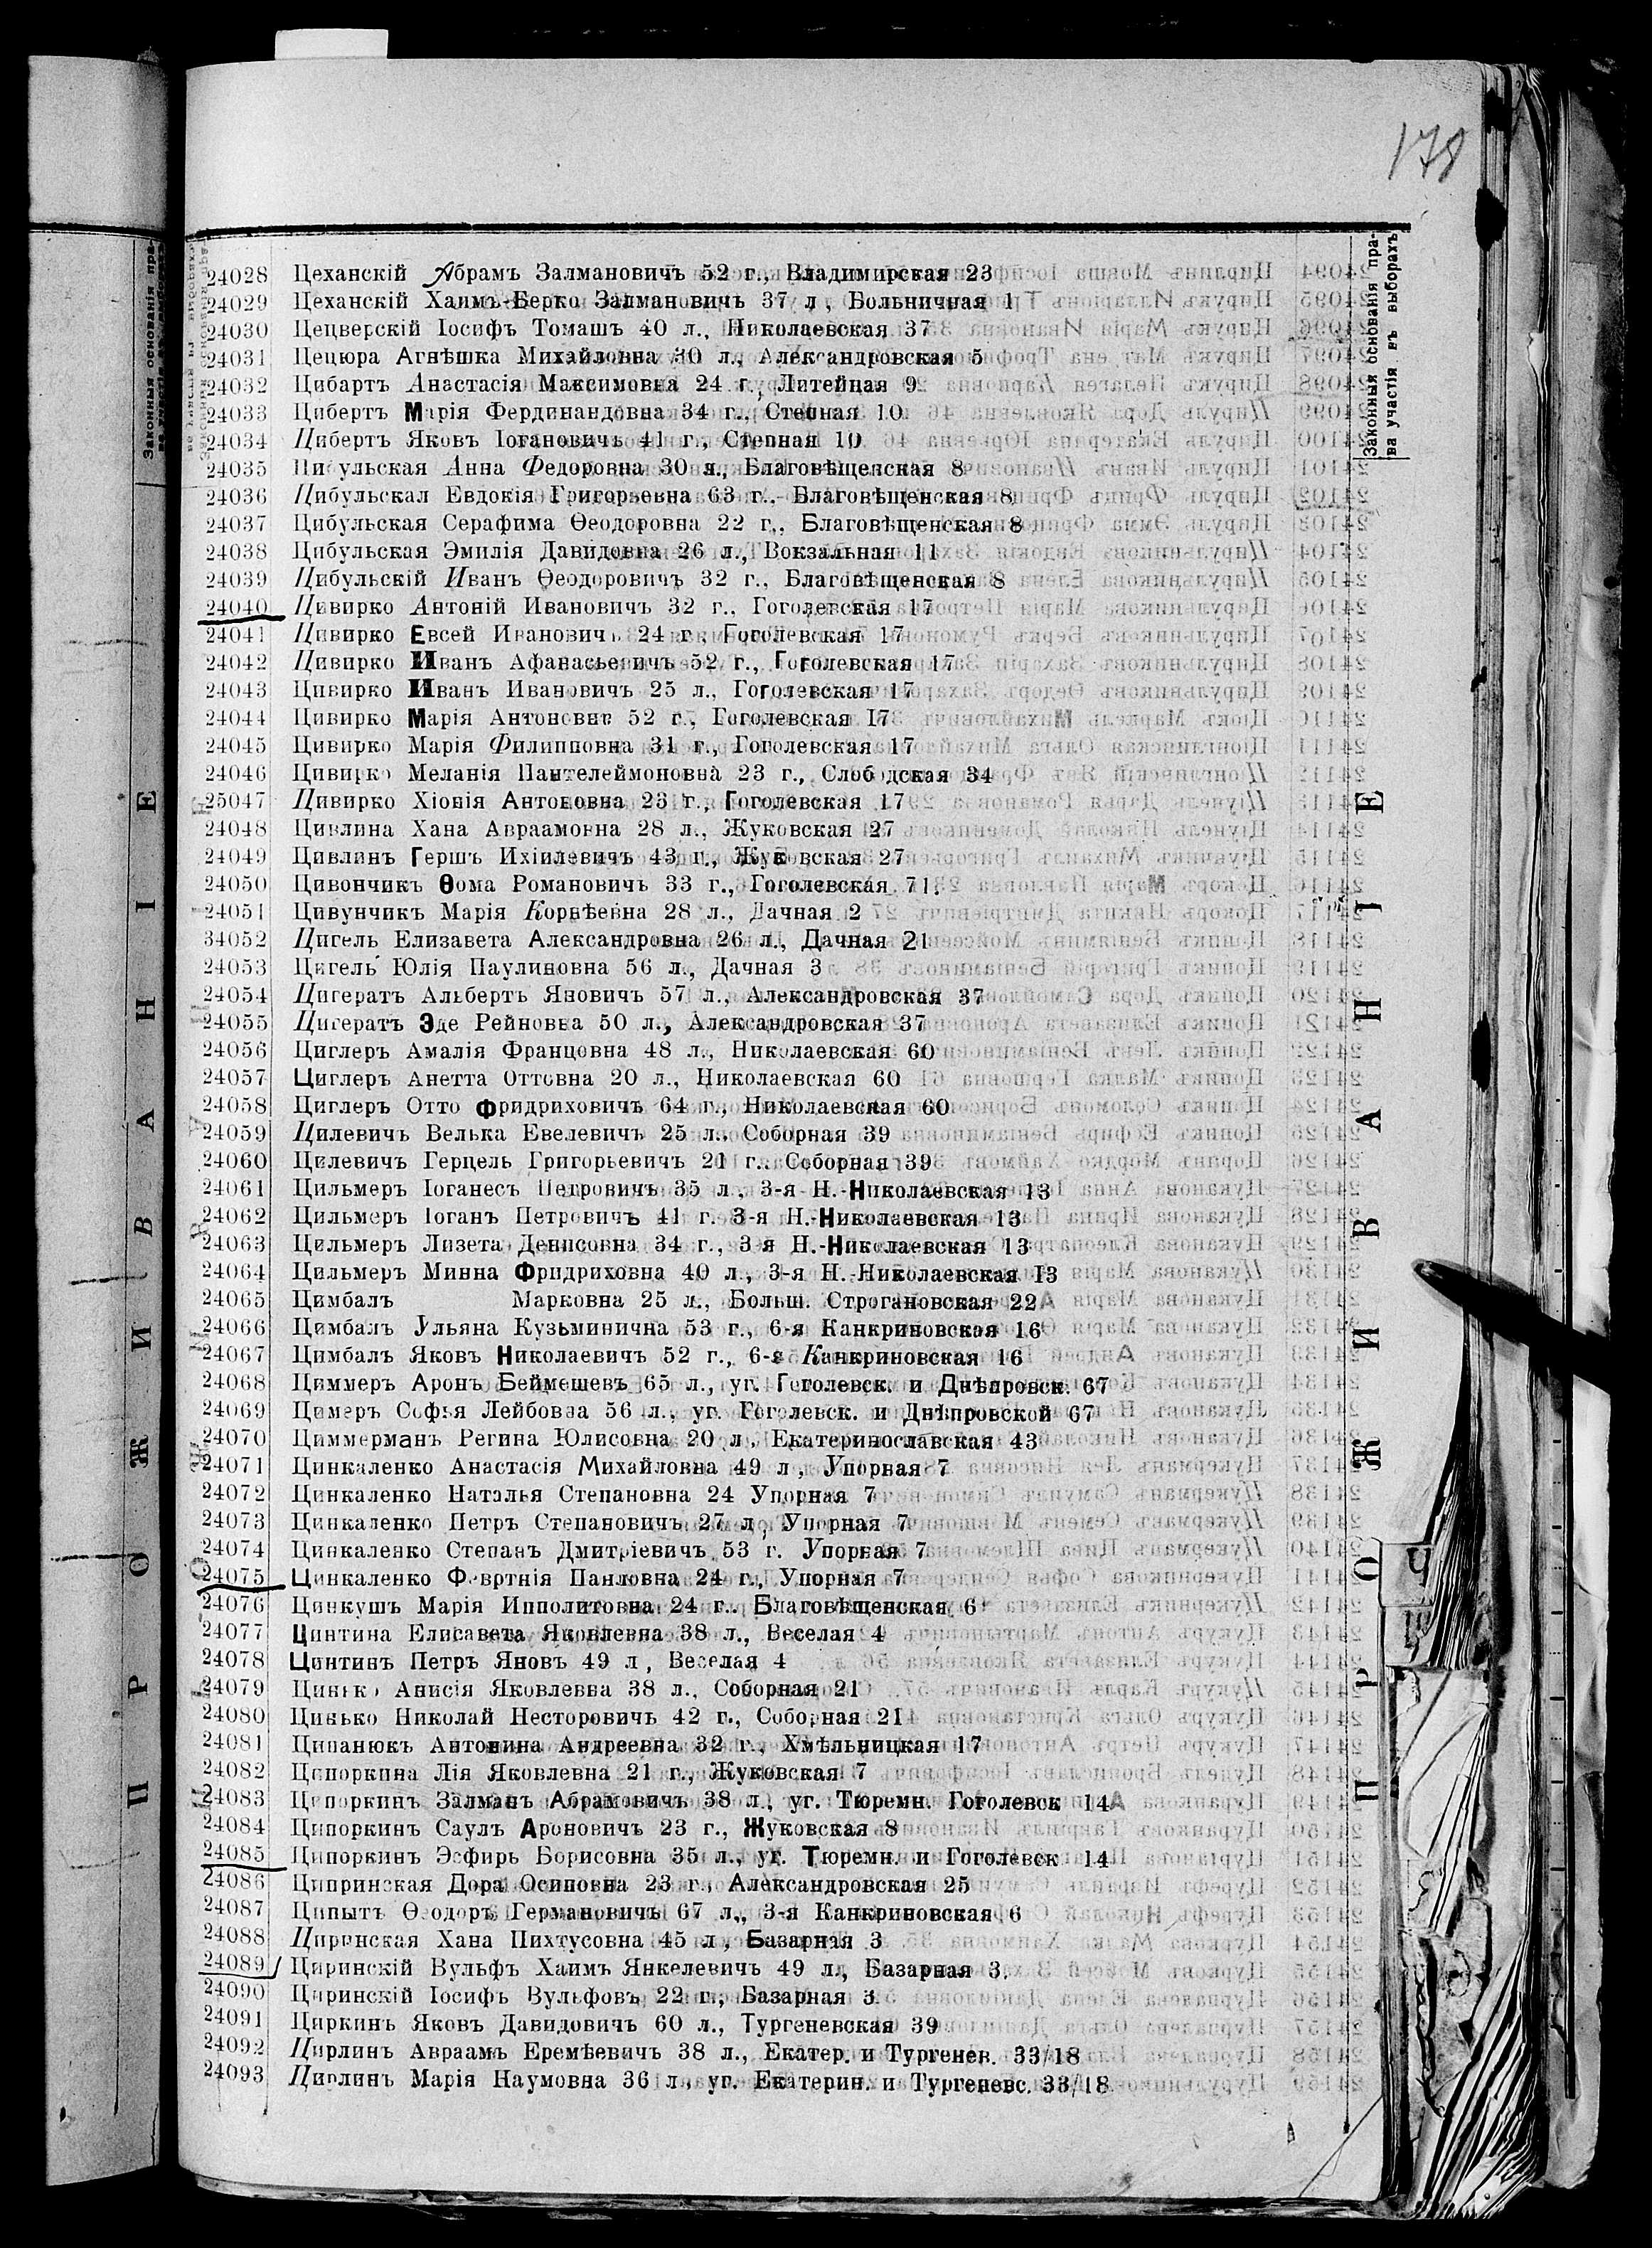 178
24028 Цеханскій Абрамъ Залмановичъ 52 г., Владимирская 23
24029 Цеханскій Хаимъ-Берко Залман вичъ 37 л, Больничная 1
24030 Цецверскій Іосифъ Томашъ 40 л., Николаевская 37
24031 Цецюра Агнѣшка Михайловна 30 л., Александровская 5
24032 Цибартъ Анастасія Максимовна 24 г., Литейная 9
24033 Цибертъ Марія Фердинандовна 34 г., Степная 10
24034 Цибертъ Яковъ Іогановичъ 41 г., Степная 10
24035 Цибульская Анна Федоровна 30 л., Благовѣщенская 8
24036 Цибульская Евдокія Григорьевна 63 г., Благовѣщенская 8
24037 Цибульская Серафима Ѳеодоровна 22 г., Благовѣщенская 8
24038 Цибульская Эмилія Давидовна 26 л., Вокзальная 11
24039 Цибульскій Иванъ Ѳеодоровичъ 32 г., Благовѣщенская 8
24040 Цивирко Антоній Ивановичъ 32 г., Гоголевская 17
24041 Цивирко Евсей Ивановичъ 24 г., Гоголевская 17
24042 Цивирко Иванъ Афанасьевичъ 52 г., Гоголевская 17
24043 Цивирко Иванъ Ивановичъ 25 л., Гоголевская 17
24044 Цивирко Марія Антоновна 52 г., Гоголевская 17
24045 Цивирко Марія Филипповна 31 г., Гоголевская 17
24046 Цивирко Меланія Пантелеймоновна 23 г., Слободская 34
25047 Цивирко Хіонія Антоновна 23 г., Гоголевская 17
24048 Цивлина Хана Авраамовна 28 л., Жуковская 27
24049 Цивлинъ Гершъ Ихіилевичъ 43 г., Жук вская 27
24050 Цивончикъ Ѳома Романовичъ 33 г., Гоголевская 71.
24051 Цивунчикъ Марія Корнѣевна 28 л., Дачная 2
34052 Цигель Елизавета Александровна 26 л., Дачная 21
24053 Цигель Юлія Паулиновна 56 л., Дачная 3
24054 Цигератъ Альбертъ Яновичъ 57 л., Александровская 37
24055 Цигератъ Эде Рейновна 50 л., Александровская 37
24056 Циглеръ Амалія Францовна 48 л., Николаевская 60
24057 Циглеръ Анетта Оттовна 20 л., Николаевская 60
24058 Циглеръ Отто Фридриховичъ 64 г., Николаевская 60
24059 Цилевичъ Велька Евелевичъ 25 л., Соборная 39
24060 Цилевичъ Герцель Григорьевичъ 21 г., Соборная 39
24061 Цильмеръ Іоганесъ Петровичъ 35 л., 3-я Н.-Николаевская 13
24062 Цильмеръ Іоганъ Петровичъ 41 г. 3-я Н.-Николаевская 13
24063 Цильмеръ Лизета Денисовна 34 г., 3 я Н.-Николаевская 13
24064 Цильмеръ Минна Фридриховна 40 л., 3-я Н.-Николаевская 13
24065 Цимбалъ Марковна 25 л., Больш. Строгановская 22
24066 Цимбалъ Ульяна Кузьминична 53 г., 6-я Канкриновская 16
24067 Цимбалъ Яковъ Николаевичъ 52 г., 6-я Канкриновская 16
24068 Циммеръ Аронъ Беймешевъ 65 л., уг. Гоголевск. и Днѣпровск. 67
24069 Цимеръ Софья Лейбовна 56 л., уг. Гоголевск. и Днѣпровской 67
24070 Циммерманъ Регина Юлисовна 20 л., Екатеринославская 43
24071 Цинкаленко Анастасія Михайловна 49 л., Упорная 7
24072 Цинкаленко Наталья Степановна 24 Упорная 7
24073 Цинкаленко Петръ Степановичъ 27 л., Упорная 7
24074 Цинкаленко Степанъ Дмитріевичъ 53 г. Упорная 7
24075 Цинкаленко Февртнія Павловна 24 г., Упорная 7
24076 Цинкушъ Марія Ипполитовна 24 г.. Благовѣщенская 6
24077 Цинтина Елисавета Яковлевна 38 л., Веселая 4
24078 Цинтинъ Петръ Яновъ 49 л., Веселая 4
24079 Цинько Анисія Яковлевна 38 л., Соборная 21
24080 Цинько Николай Несторовичъ 42 г., Соборная 21
24081 Ципанюкъ Антонина Андреевна 32 г., Хмѣльницкая 17
24082 Ципоркина Лія Яковлевна 21 г., Жуковская 7
24083 Ципоркинъ Залманъ Абрамовичъ 38 л., уг. Тюремн. Гоголевск 14
24084 Ципоркинъ Саулъ Ароновичъ 23 г., Жуковская 8
24085 Ципоркинъ Эсфирь Борисовна 35 л., уг. Тюремн. и Гоголевск 14
24086 Ципринская Дора Осиповна 23 г., Александровская 25
24087 Ципытъ Ѳеодоръ Германовичъ 67 л., 3-я Канкриновская 6
24088 Циринская Хана Пихтусовна 45 л., Базарная 3
24089 Циринскій Вульфъ Хаимъ Янкелевичъ 49 л., Базарная 3.
24090 Циринскій Іосифъ Вульфовъ 22 г., Базарная 3
24091 Циркинъ Яковъ Давидовичъ 60 л., Тургеневская 39
24092 Цирлинъ Авраамъ Еремѣевичъ 38 л., Екатер. и Тургенев. 33/18
24093 Цирлинъ Марія Наумовна 36 л., уг. Екатерин. и Тургеневс. 33/18
Законныя основанія пра-
ва участія въ выборахъ
ПРОЖИВАНІЕ
Законныя основанія пра-
ПРОЖИВАНІЕ